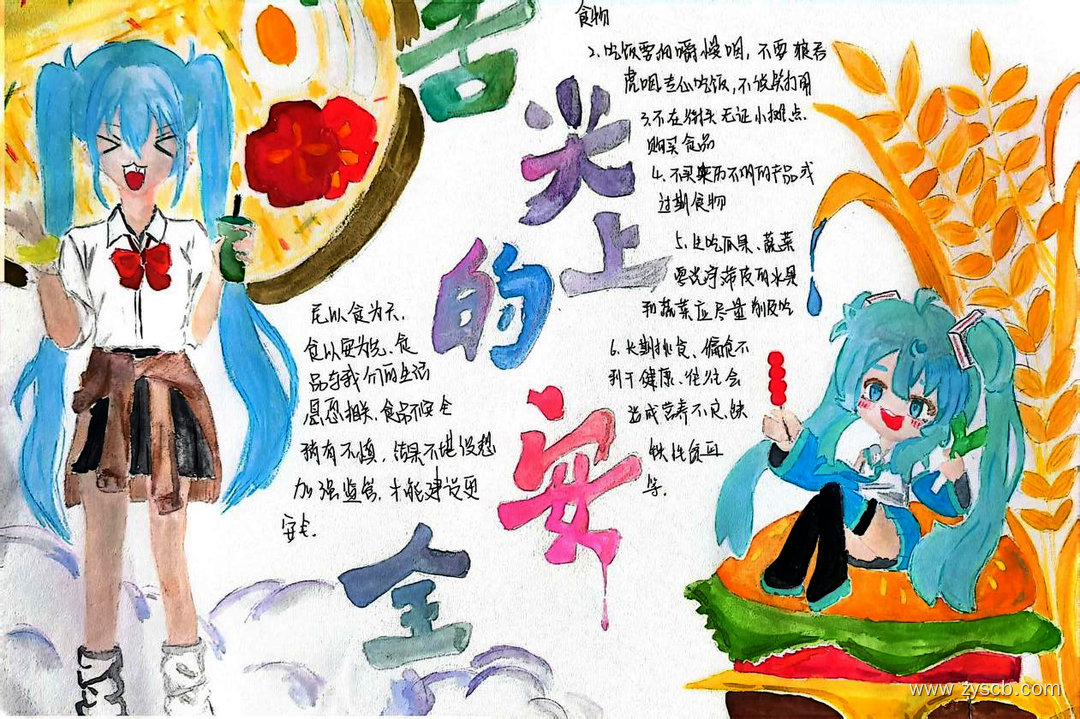 舌尖上的安全
食物
2.吃饭要细嚼慢咽，不要狼吞
虎咽走仙吃饭，不饭关打闹
3.不在街头无证小摊点
购买食品
4.不买来历不明的产品或
过期食物
5.生吃瓜果、蔬菜
要洗净带皮的水果
和蔬菜应尽量削皮吃
6.长期挑食、偏食不
利于健康、往往会
造成营养不良、缺
铁性贫血
等.
民以食为天.
食以安为先、食
品与我们的生活
息息相关、食品不安全
稍有不慎，结果不堪设想
加强监管，才能建设更
安全.
www.zyscb.com